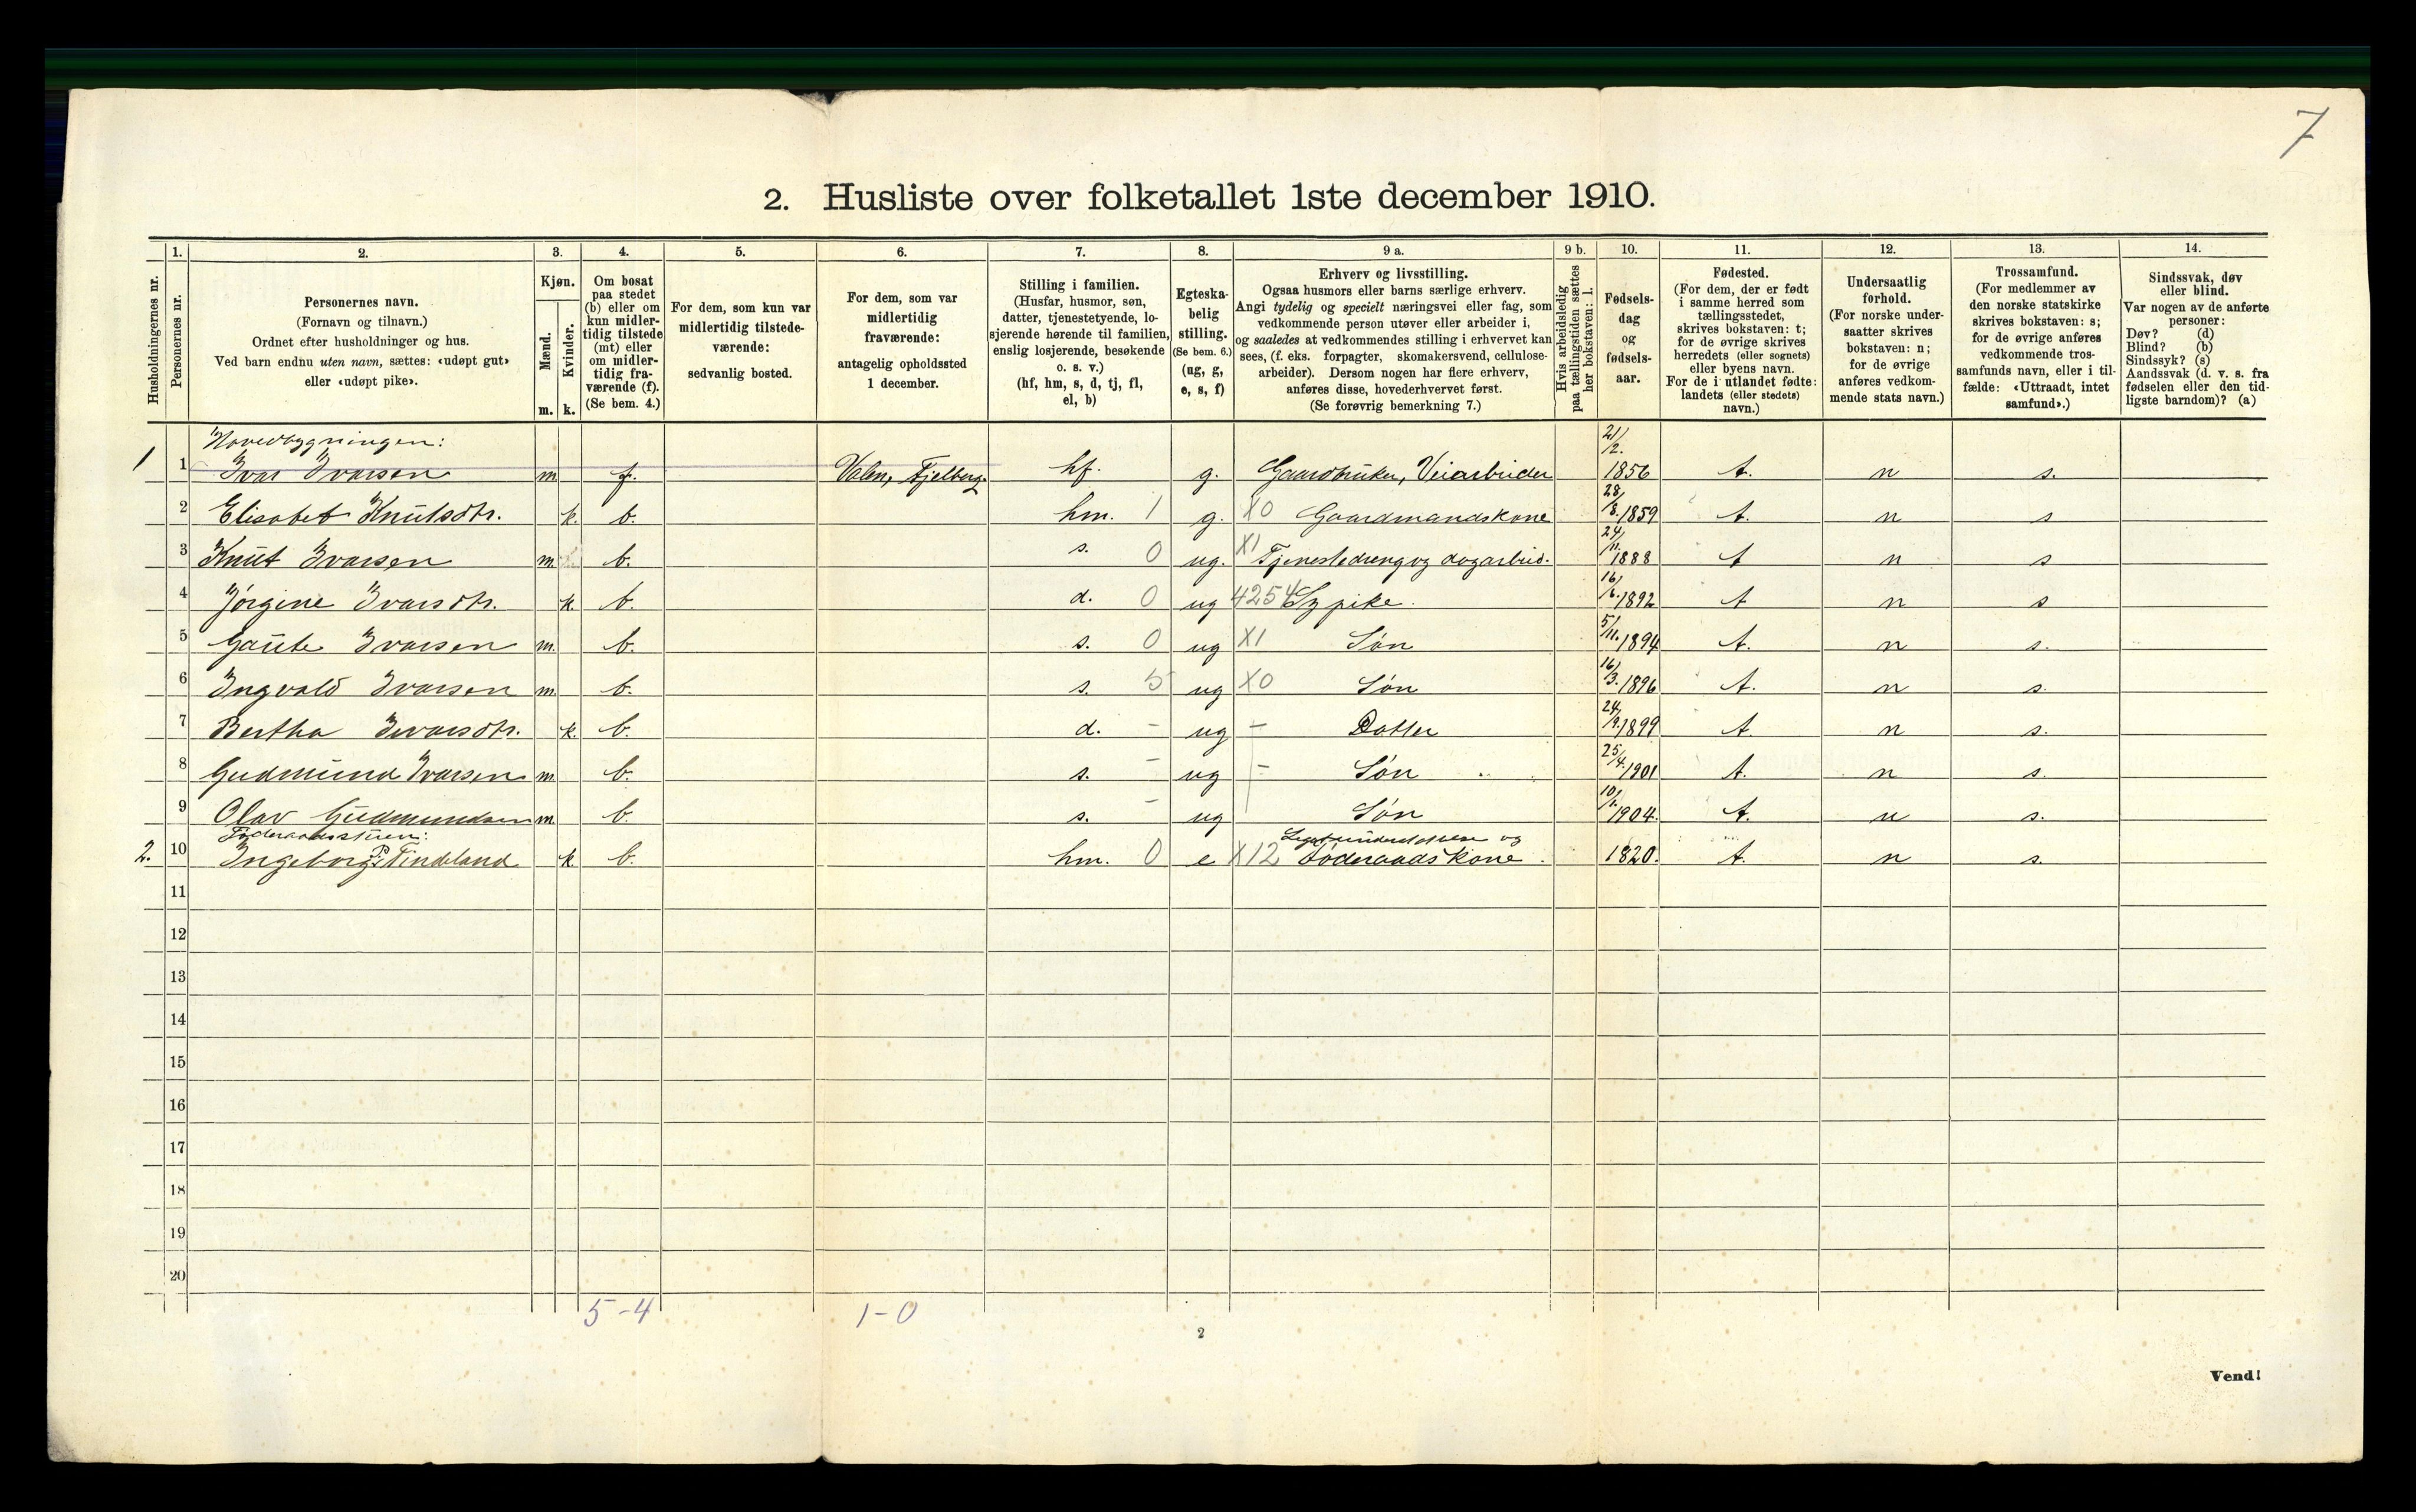 7
2. Husliste over folketallet 1ste december 1910.
Husholdningernes nr.
1. Personernes nr.
2. Personernes navn.
(Fornavn og tilnavn.)
Ordnet efter husholdninger og hus.
Ved barn endnu uten navn, sættes: «udøpt gut»
eller «udøpt pike».
3. Kjøn.
Mænd. m.
Kvinder. k.
4. Om bosat
paa stedet
(b) eller om
kun midler-
tidig tilstede
(mt) eller
om midler-
tidig fra-
værende (f).
(Se bem. 4.)
5. For dem, som kun var
midlertidig tilstede-
værende:
sedvanlig bosted.
6. For dem, som var
midlertidig
fraværende:
antagelig opholdssted
1 december.
7. Stilling i familien.
(Husfar, husmor, søn,
datter, tjenestetyende, lo-
sjerende hørende til familien,
enslig losjerende, besøkende
o. s. v.)
(hf, hm, s, d, tj, fl,
el, b)
8. Egteska-
belig
stilling.
(Se bem. 6.)
(ug, g,
e, s, f)
9 a. Erhverv og livsstilling.
Ogsaa husmors eller barns særlige erhverv.
Angi tydelig og specielt næringsvei eller fag, som
vedkommende person utøver eller arbeider i,
og saaledes at vedkommendes stilling i erhvervet kan
sees, (f. eks. forpagter, skomakersvend, cellulose-
arbeider). Dersom nogen har flere erhverv,
anføres disse, hovederhvervet først.
(Se forøvrig bemerkning 7.)
9 b. Hvis arbeidsledig
paa tællingstiden sættes
her bokstaven: l.
10. Fødsels-
dag
og
fødsels-
aar.
11. Fødested.
(For dem, der er født
i samme herred som
tællingsstedet,
skrives bokstaven: t;
for de øvrige skrives
herredets (eller sognets)
eller byens navn.
For de i utlandet fødte:
landets (eller stedets)
navn.)
12. Undersaatlig
forhold.
(For norske under-
saatter skrives
bokstaven: n;
for de øvrige
anføres vedkom-
mende stats navn.)
13. Trossamfund.
(For medlemmer av
den norske statskirke
skrives bokstaven: s;
for de øvrige anføres
vedkommende tros-
samfunds navn, eller i til-
fælde: «Uttraadt, intet
samfund».)
14. Sindssvak, døv
eller blind.
Var nogen av de anførte
personer:
Døv? (d)
Blind? (b)
Sindssyk? (s)
Aandssvak (d. v. s. fra
fødselen eller den tid-
ligste barndom)? (a)
Hovedbygningen:
1 1 Ivar Ivarsen m f. Valen, Fjelberg. hf. g. Gaardbruker, Veiarbeider 21/2. 1856 t. n s.
2 Elisabet Knutsdtr. k. b. hm. 1 g. X0 Gaardmandskone 28/8. 1859 t. n s
3 Knut Ivarsen m b. s. 0 ug. X1 Tjenestedreng og dagarbeid. 24/11. 1888 t n s
4 Jørgine Ivarsdtr. k b. d. 0 ug 4254 Sypike. 16/6. 1892 t n s
5 Gaute Ivarsen m. b. s. 0 ug X1 Søn 5/11. 1894 t. n s.
6 Ingvald Ivarsen m. b. s. 5 ug X0 Søn 16/3. 1896 t. n s.
7 Bertha Ivarsdtr. k. b. d. - ug - Datter 24/9. 1899 t. n s.
8 Gudmund Ivarsen m b. s. - ug - Søn 25/4. 1901 t. n s.
9 Olav Gudmundsen m b. s. - ug Søn 10/1. 1904. t. n s.
Føderaadsstuen:
2. 10 Ingeborg P. Tindeland k b. hm. 0 e X12 Legdsunderstøttelse og Føderaadskone 1820. t. n s.
11
12
13
14
15
16
17
18
19
20
5-4 1-0
2
Vend!